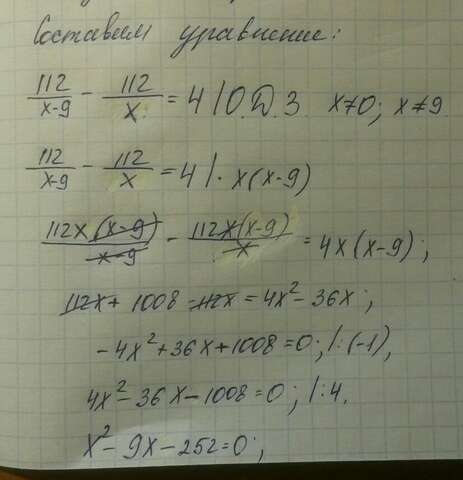 Составим уравнение:
112/(x-9) - 112/x = 4 | О.Д.З. x≠0; x≠9
112/(x-9) - 112/x = 4 | · x(x-9)
112x(x-9)/(x-9) - 112x(x-9)/x = 4x(x-9);
112x + 1008 - 112x = 4x² - 36x;
-4x² + 36x + 1008 = 0; | : (-1),
4x² - 36x - 1008 = 0; | : 4.
x² - 9x - 252 = 0;